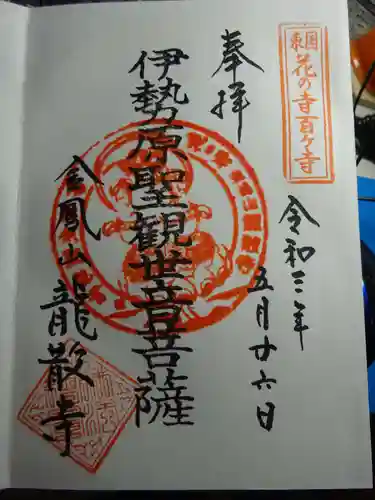 東国
花の寺百ヶ寺
奉拝
令和三年
五月廿六日
伊勢原聖観世音菩薩
金鳳山
龍散寺